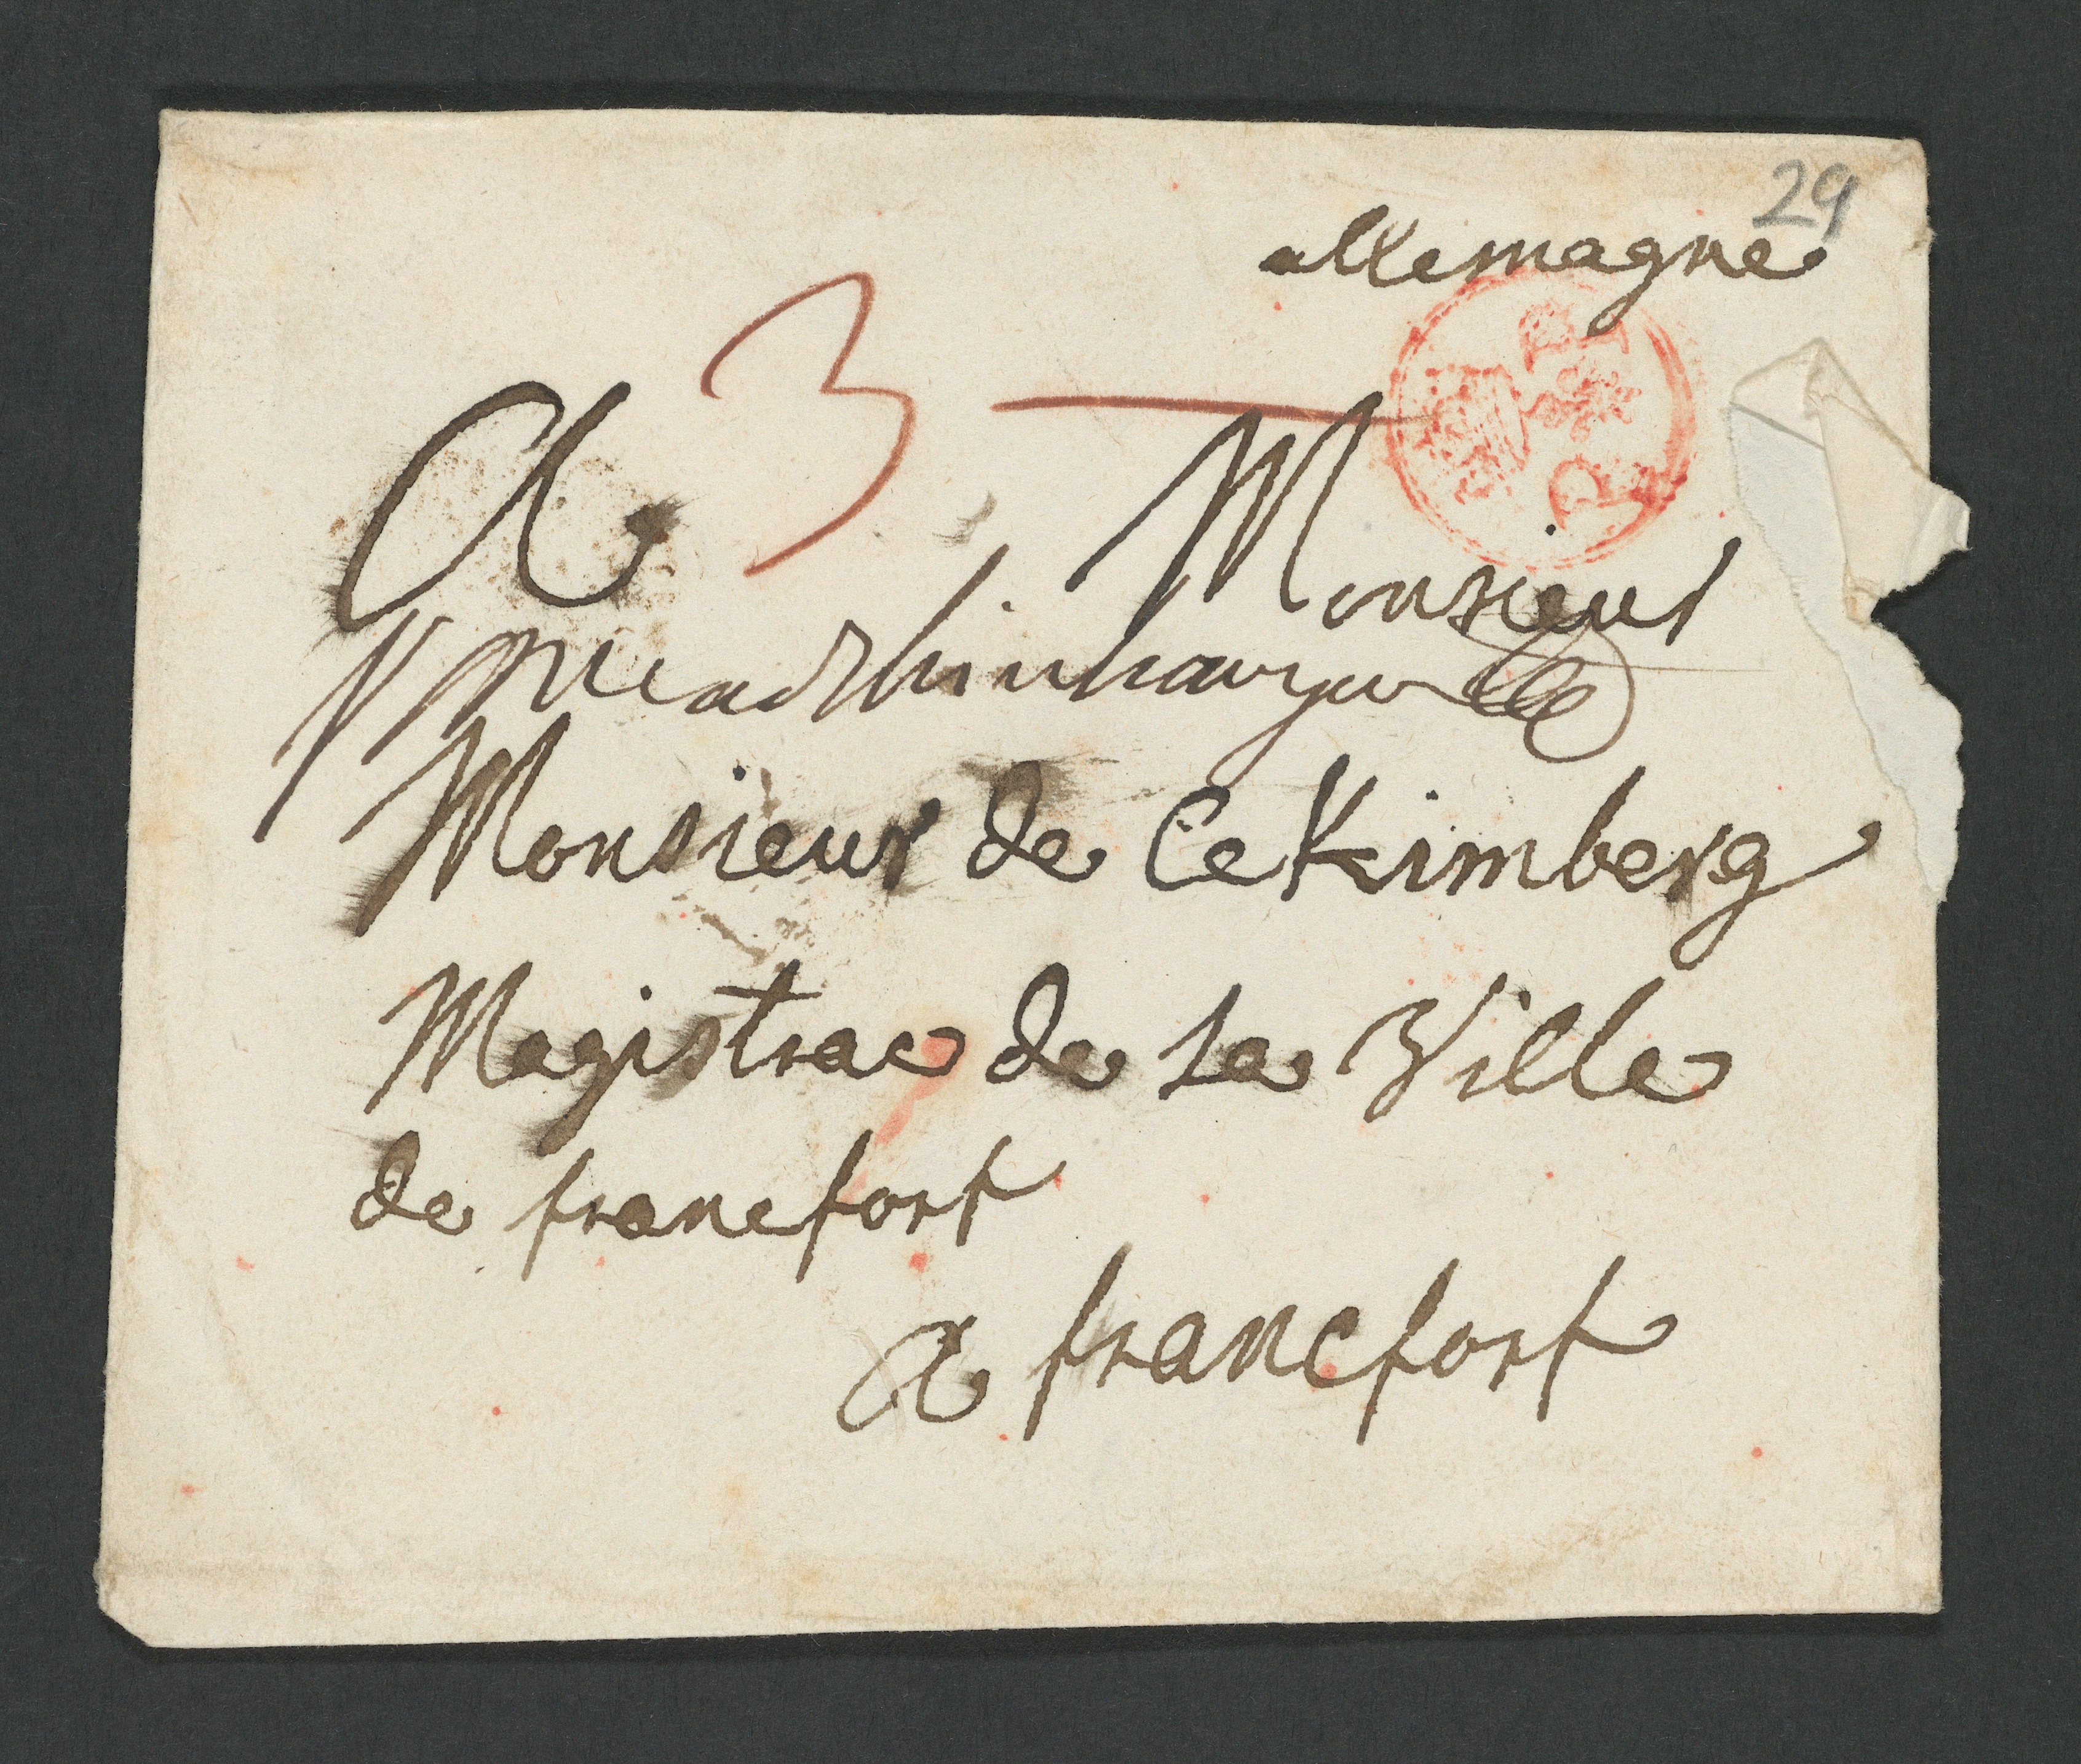 29
allemagne
3
A Monsieur
Monsieur de CeKimberg
Magistrac de La Ville
de francfort
a francfort